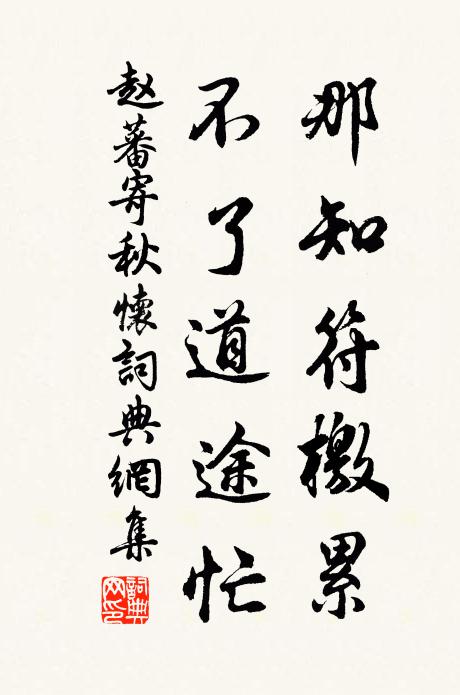 那知符檄累
不了道途忙
赵蕃寄秋懷詞典網集
詞典網印